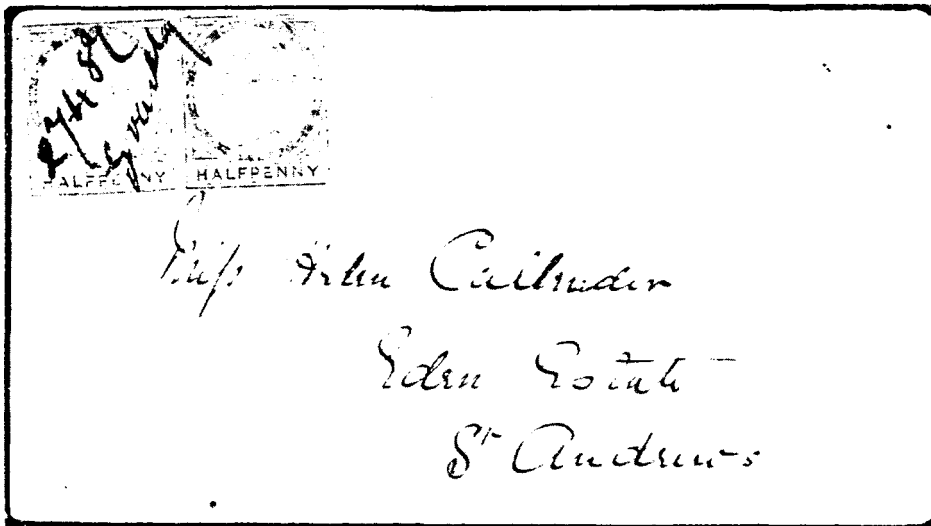 HALFPENNY HALFPENNY
Miss Helen Callender
Eden Estate
St Andrews